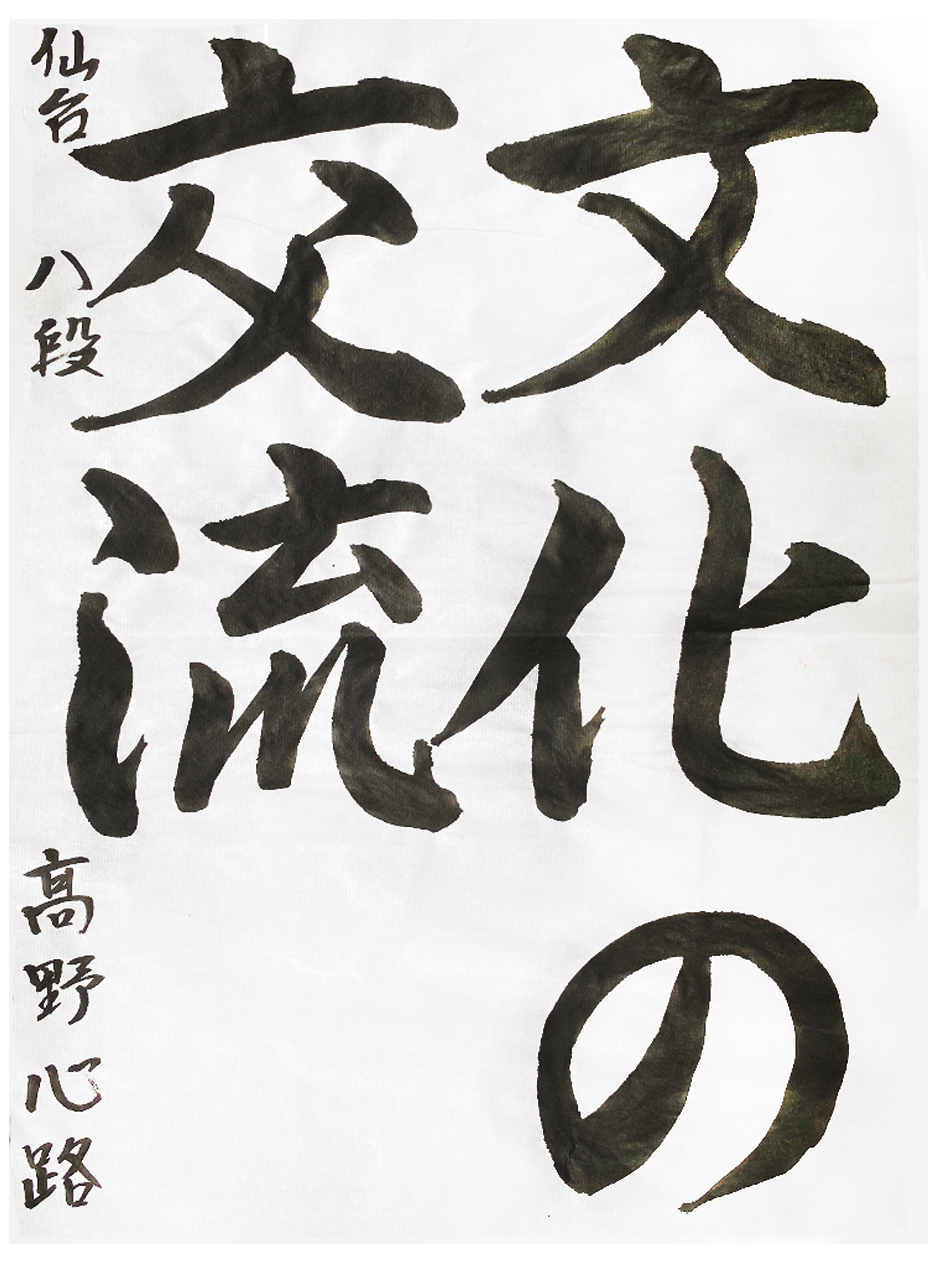 文化の
交流
仙台 八段 高野心路